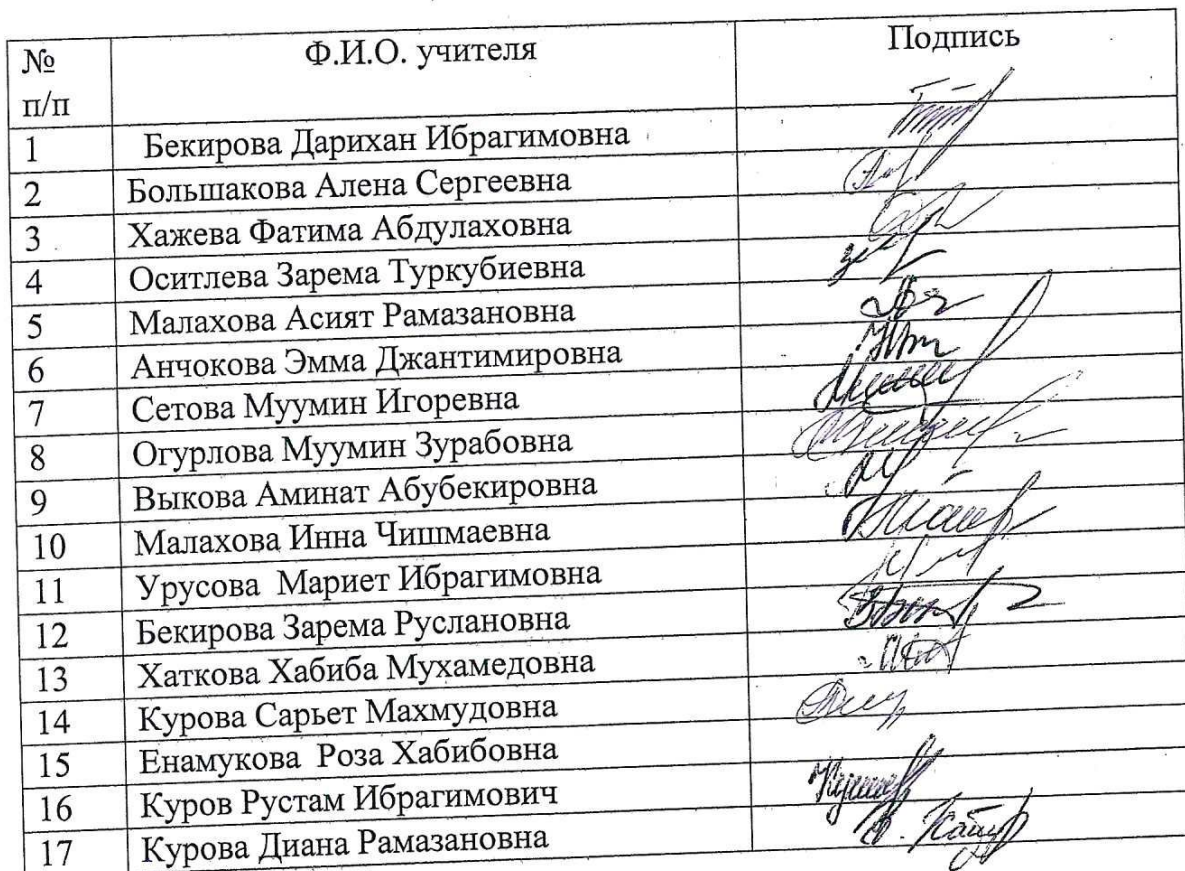 № п/п Ф.И.О. учителя Подпись
1 Бекирова Дарихан Ибрагимовна
2 Большакова Алена Сергеевна
3 Хажева Фатима Абдулаховна
4 Оситлева Зарема Туркубиевна
5 Малахова Асият Рамазановна
6 Анчокова Эмма Джантимировна
7 Сетова Муумин Игоревна
8 Огурлова Муумин Зурабовна
9 Выкова Аминат Абубекировна
10 Малахова Инна Чишмаевна
11 Урусова Мариет Ибрагимовна
12 Бекирова Зарема Руслановна
13 Хаткова Хабиба Мухамедовна
14 Курова Сарьет Махмудовна
15 Енамукова Роза Хабибовна
16 Куров Рустам Ибрагимович
17 Курова Диана Рамазановна